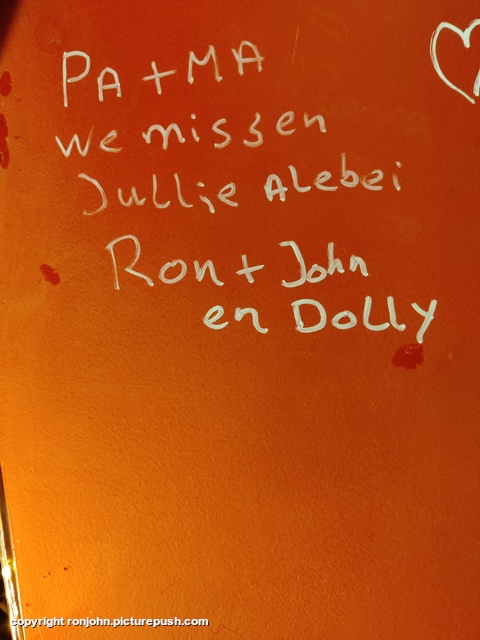 PA + MA
we missen
Jullie Alebei
Ron + John
en Dolly
copyright ronjohn.picturepush.com